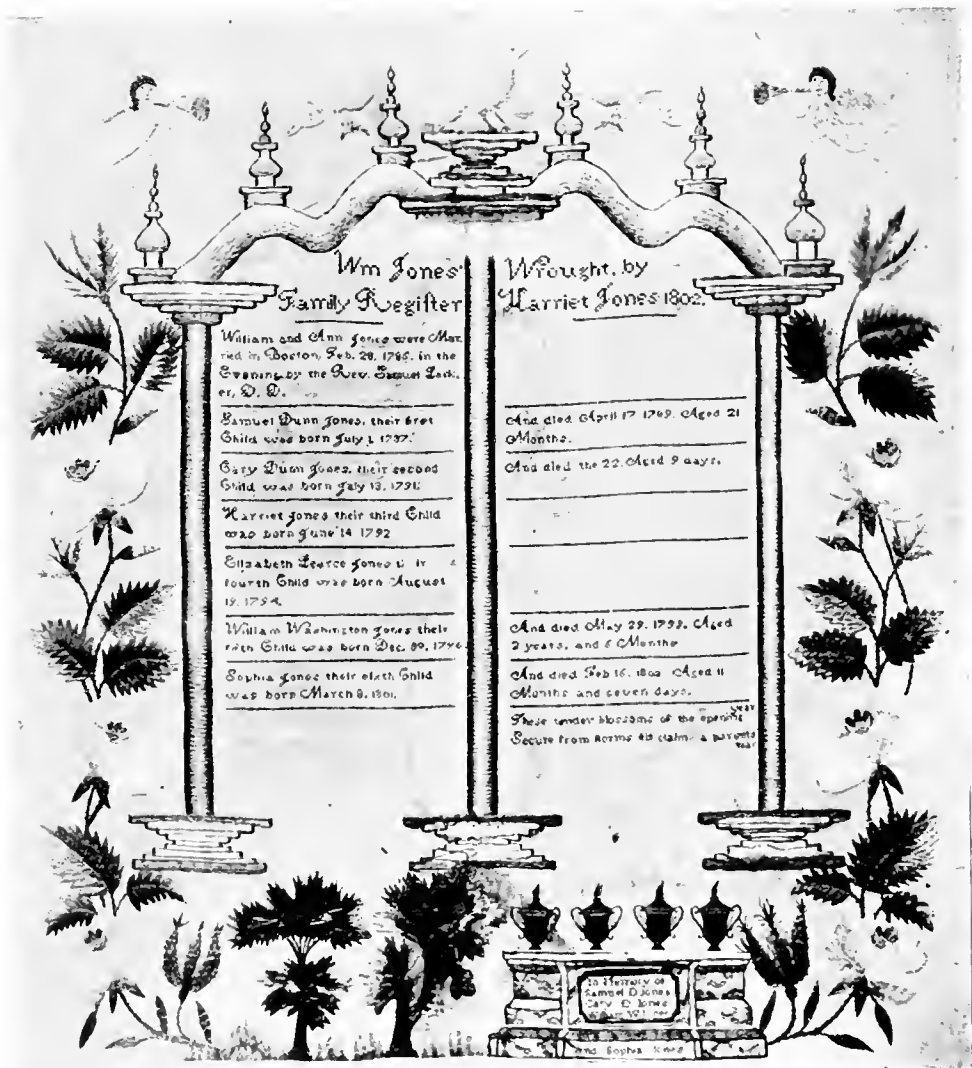 Wm Jones'
Family Regiſter
William and Ann Jones were Mar
ried in Boston, Feb. 28, 1785, in the
Evening by the Rev. Samuel
er, D. D.
Samuel Dunn Jones, their first
Child was born July 1, 1787.
Gary Dunn Jones, their second
Child was born July 13, 1791.
Harriet Jones their third Child
was born June 14 1792
Elizabeth Jones
fourth Child was born August
19, 1794.
William Washington Jones their
fifth Child was born Dec.
Sophia Jones their sixth Child
was born March 9, 1801.
Wrought, by
Harriet Jones 1802.
And died April 17 1789. Aged 21
Months.
And died the 22. Aged 9 days.
And died May 29, 1799, Aged
2 years, and 5 Months
And died Feb 16, 1802 Aged 11
Months and seven days.
These tender blossoms of the opening
year
Secure from claim a parents
tear
In Memory of
Samuel D Jones
Gary D Jones
William W
and Sophia Jones